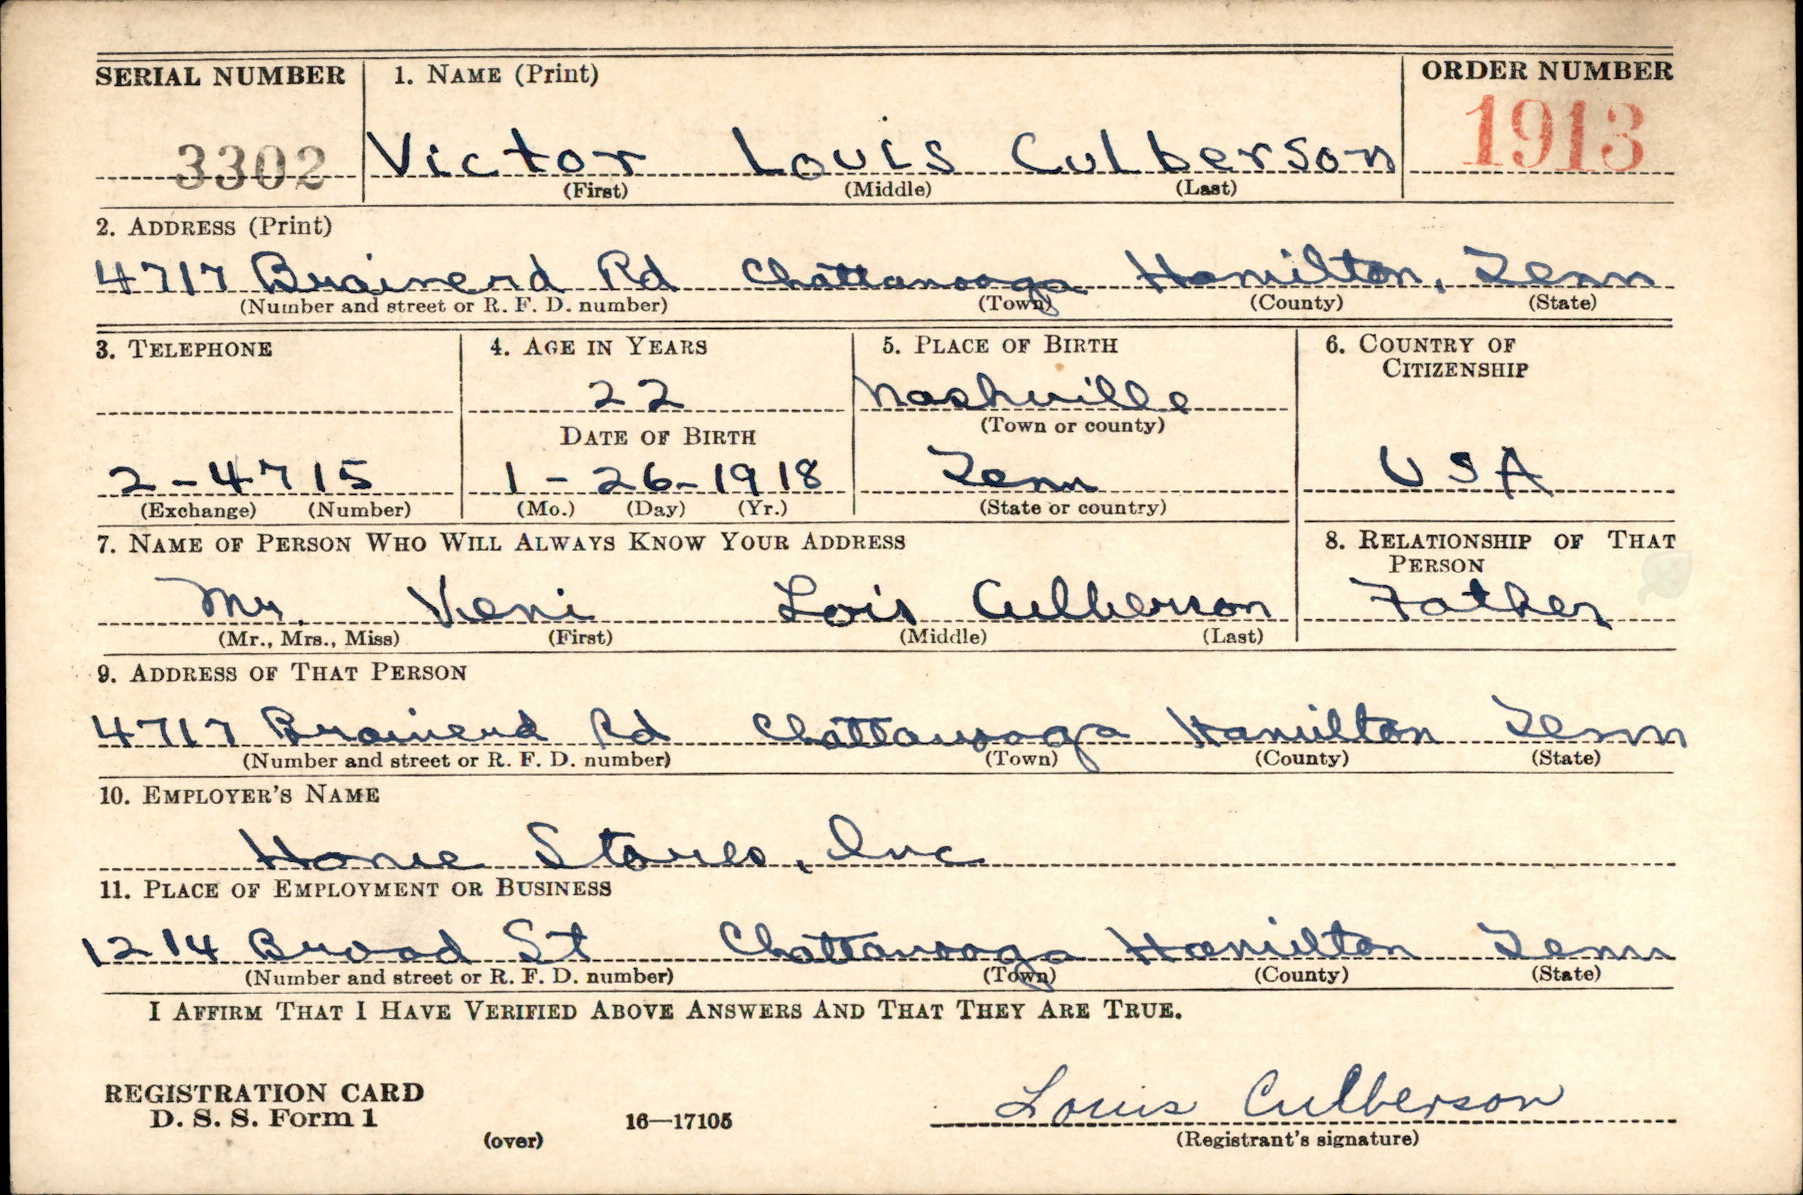 SERIAL NUMBER 1. NAME (Print) ORDER NUMBER
3302 Victor Louis Culberson 1913
(First) (Middle) (Last)
2. ADDRESS (Print)
4717 Brainerd Rd Chattanooga Hamilton, Tenn
(Number and street or R. F. D. number) (Town) (County) (State)
3. TELEPHONE 4. AGE IN YEARS 5. PLACE OF BIRTH 6. COUNTRY OF
CITIZENSHIP
22 Nashville
(Town or county)
DATE OF BIRTH
2-4715 1-26-1918 Tenn USA
(Exchange) (Number) (Mo.) (Day) (Yr.) (State or country)
7. NAME OF PERSON WHO WILL ALWAYS KNOW YOUR ADDRESS 8. RELATIONSHIP OF THAT
PERSON
Mr. Veni Lois Culberson Father
(Mr., Mrs., Miss) (First) (Middle) (Last)
9. ADDRESS OF THAT PERSON
4717 Brainerd Rd Chattanooga Hamilton Tenn
(Number and street or R. F. D. number) (Town) (County) (State)
10. EMPLOYER'S NAME
Home Stores, Inc
11. PLACE OF EMPLOYMENT OR BUSINESS
1214 Broad St Chattanooga Hamilton Tenn
(Number and street or R. F. D. number) (Town) (County) (State)
I AFFIRM THAT I HAVE VERIFIED ABOVE ANSWERS AND THAT THEY ARE TRUE.
REGISTRATION CARD
D. S. S. Form 1 16—17105 Louis Culberson
(over) (Registrant's signature)